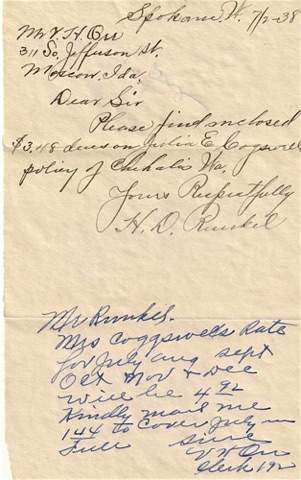 Spokane, W. 7/2-38
Mr V. H. Orr
311 So, Jefferson St.
Moscow, Ida.
Dear Sir
Please find inclosed
$3.48 due on Julia E. Cogswell
policy of Chehalis Wa.
Yours Respectfully
H. D. Runkel
Mr Runkel.
Mrs Coggswells Rate
for July Aug Sept
Oct Nov & Dec
will be 4 92
Kindly mail me
1 44 to Cover July in
Full Sinc
V H Orr
Clerk 192